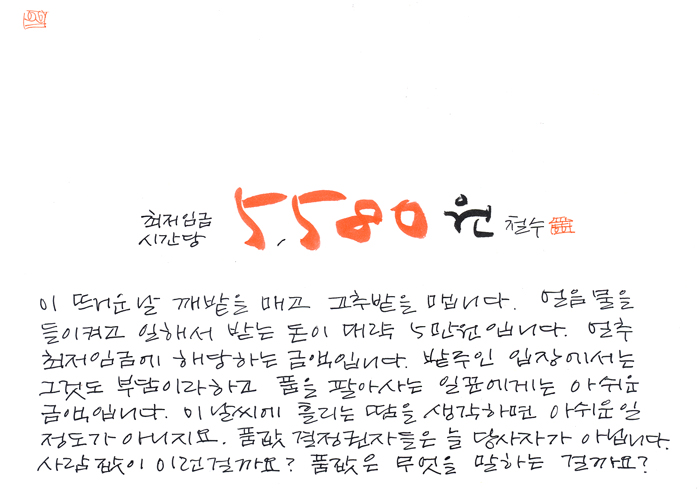 최저임금
시간당
5,580 원 철수
이 뜨거운날 깨밭을 매고 고추밭을 맵니다. 얼음물을
들이켜고 일해서 받는 돈이 대략 5만원입니다. 얼추
최저임금에 해당하는 금액입니다. 밭주인 입장에서는
그것도 부담이라하고 품을 팔아사는 일꾼에게는 아쉬운
금액입니다. 이 날씨에 흘리는 땀을 생각하면 아쉬운일
정도가 아니지요. 품값 결정권자들은 늘 당사자가 아닙니다.
사람값이 이런걸까요? 품값은 무엇을 말하는 걸까요?